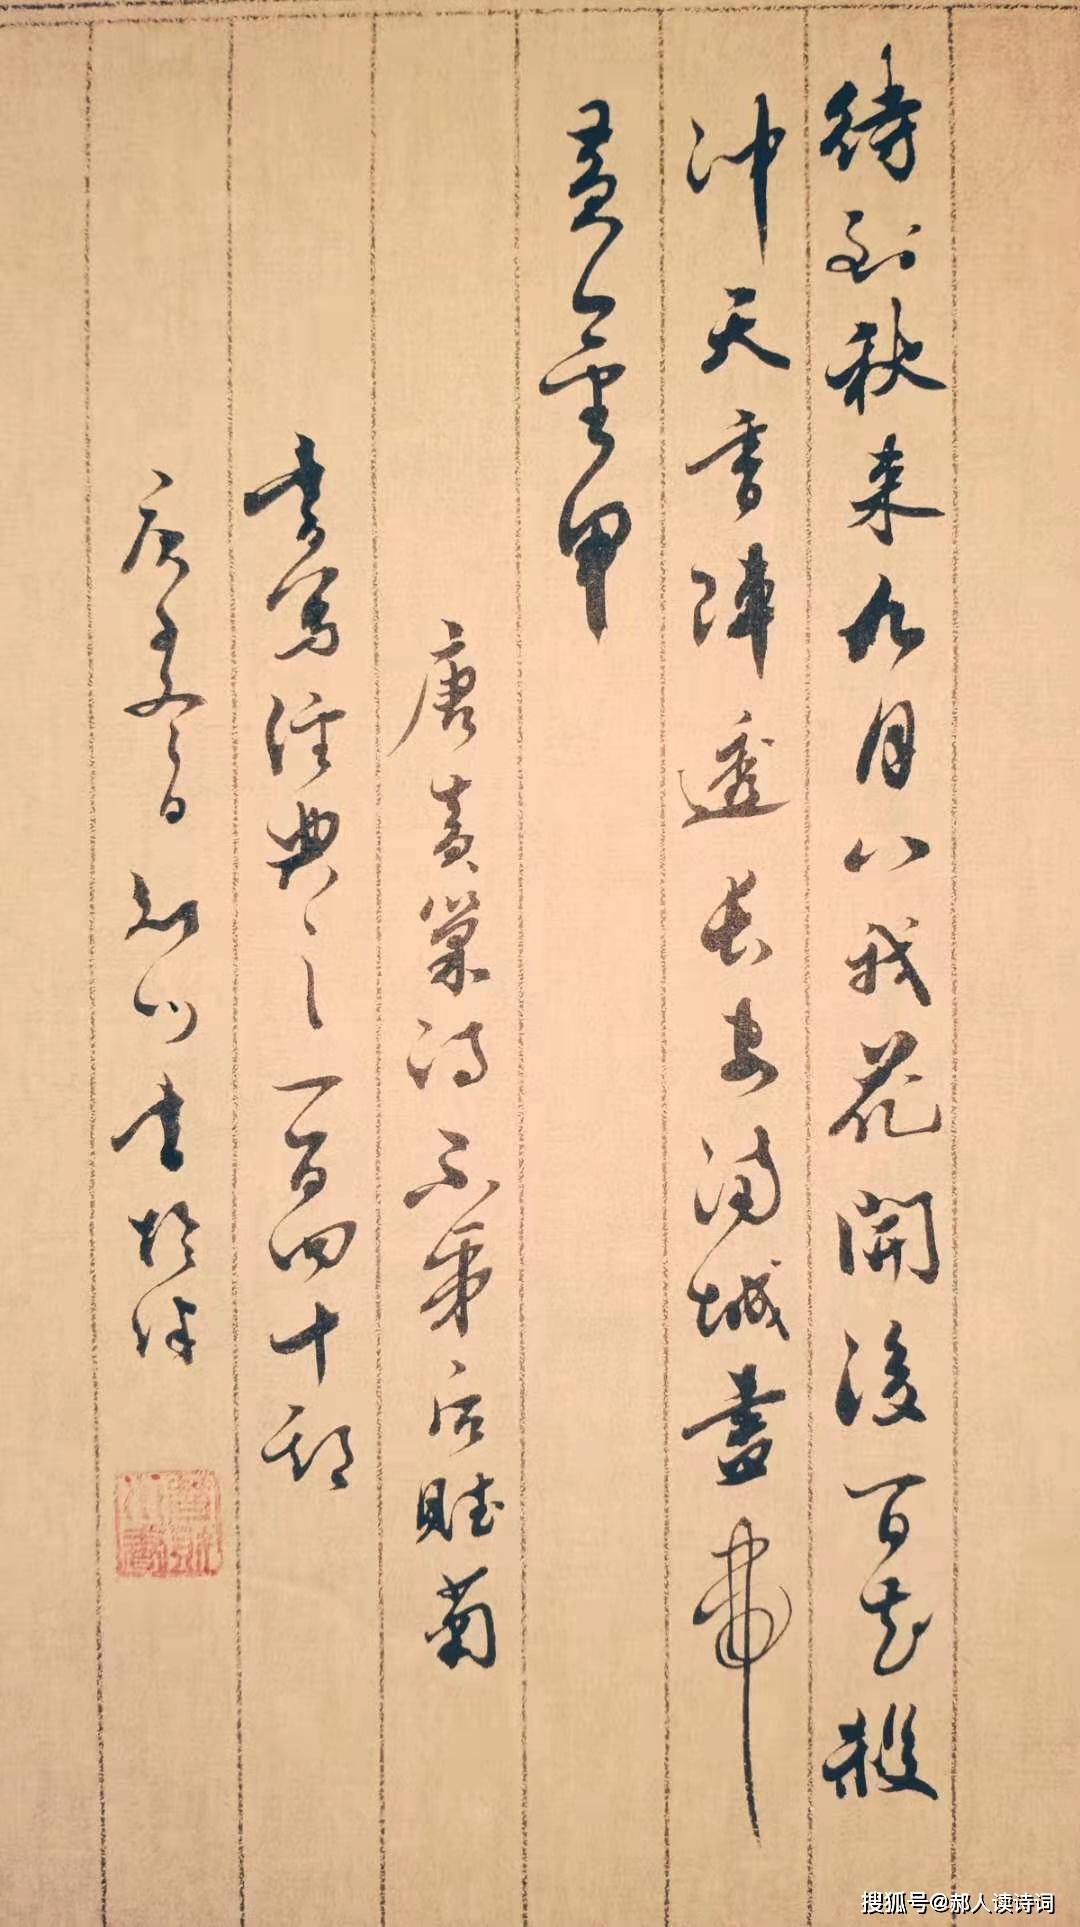 待到秋来九月八我花開後百花殺
冲天香陣透长安满城盡帶
黄金甲
唐黄巢诗不第后赋菊
书写经典之一百四十期
庚子冬日书於
搜狐号@郝人读诗词